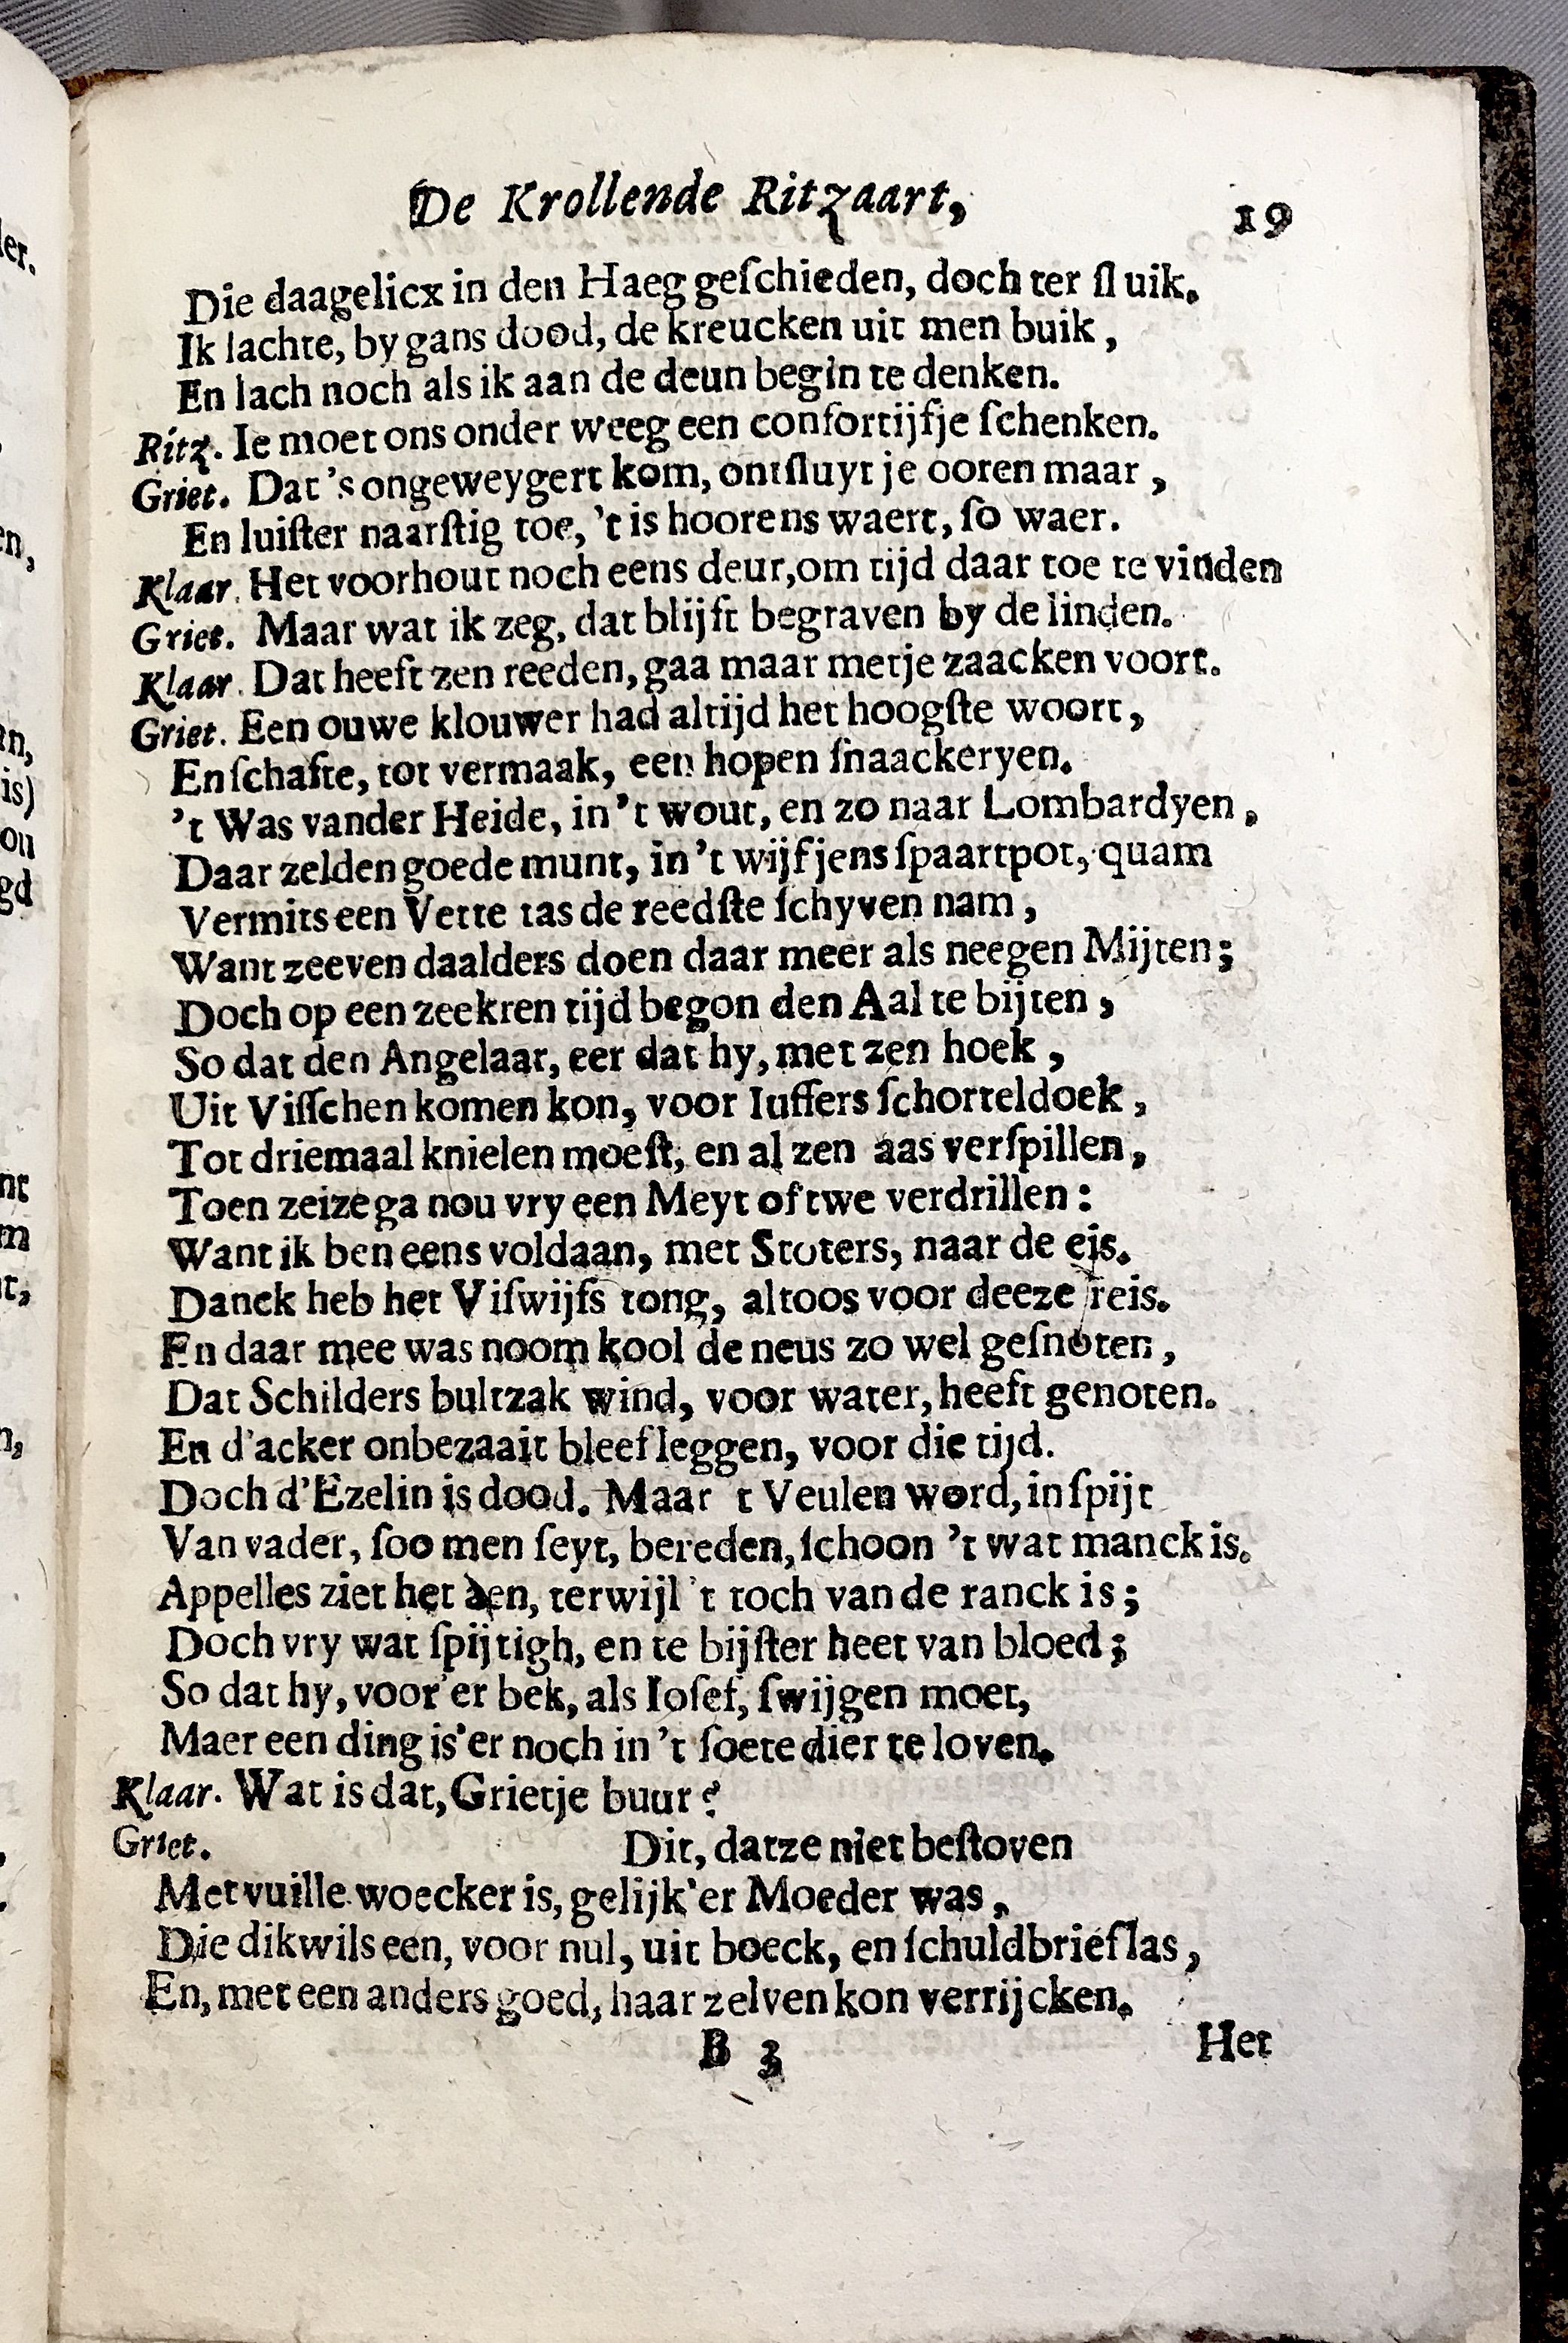 De Krollende Ritzaart, 19
Die daagelicx in den Haeg geſchieden, doch ter ſluik.
Ik lachte, by gans dood, de kreucken uit men buik,
En lach noch als ik aan de deun begin te denken.
Ritz. Ie moet ons onder weeg een confortijfje ſchenken.
Griet. Dat 's ongeweygert kom, ontſluyt je ooren maar,
En luiſter naarſtig toe, 't is hoorens waert, ſo waer.
Klaar. Het voorhout noch eens deur, om tijd daar toe te vinden
Griet. Maar wat ik zeg, dat blijft begraven by de linden.
Klaar. Dat heeft zen reeden, gaa maar met je zaacken voort.
Griet. Een ouwe klouwer had altijd het hoogſte woort,
En ſchafte, tot vermaak, een hopen ſnaackeryen.
't Was vander Heide, in 't wout, en zo naar Lombardyen,
Daar zelden goede munt, in 't wijfjens ſpaartpot, quam
Vermits een Vette tas de reedſte ſchyven nam,
Want zeeven daalders doen daar meer als neegen Mijten;
Doch op een zeekren tijd begon den Aal te bijten,
So dat den Angelaar, eer dat hy, met zen hoek,
Uit Viſſchen komen kon, voor Iuffers ſchorteldoek,
Tot driemaal knielen moeſt, en al zen aas verſpillen,
Toen zei ze ga nou vry een Meyt of twe verdrillen:
Want ik ben eens voldaan, met Stoters, naar de eis.
Danck heb het Viſwijfs tong, altoos voor deeze reis.
En daar mee was noom kool de neus zo wel geſnoten,
Dat Schilders bultzak wind, voor water, heeft genoten.
En d'acker onbezaait bleef leggen, voor die tijd.
Doch d'Ezelin is dood. Maar t Veulen word, in ſpijt
Van vader, ſoo men ſeyt, bereden, ſchoon 't wat manck is.
Appelles ziet het aen, terwijl 't toch van de ranck is;
Doch vry wat ſpijtigh, en te bijſter heet van bloed;
So dat hy, voor'er bek, als Ioſef, ſwijgen moet,
Maer een ding is'er noch in 't ſoete dier te loven.
Klaar. Wat is dat, Grietje buur?
Griet. Dit, dat ze niet beſtoven
Met vuille woecker is, gelijk'er Moeder was,
Die dikwils een, voor nul, uit boeck, en ſchuldbrief las,
En, met een anders goed, haar zelven kon verrijcken.
B 3 Het